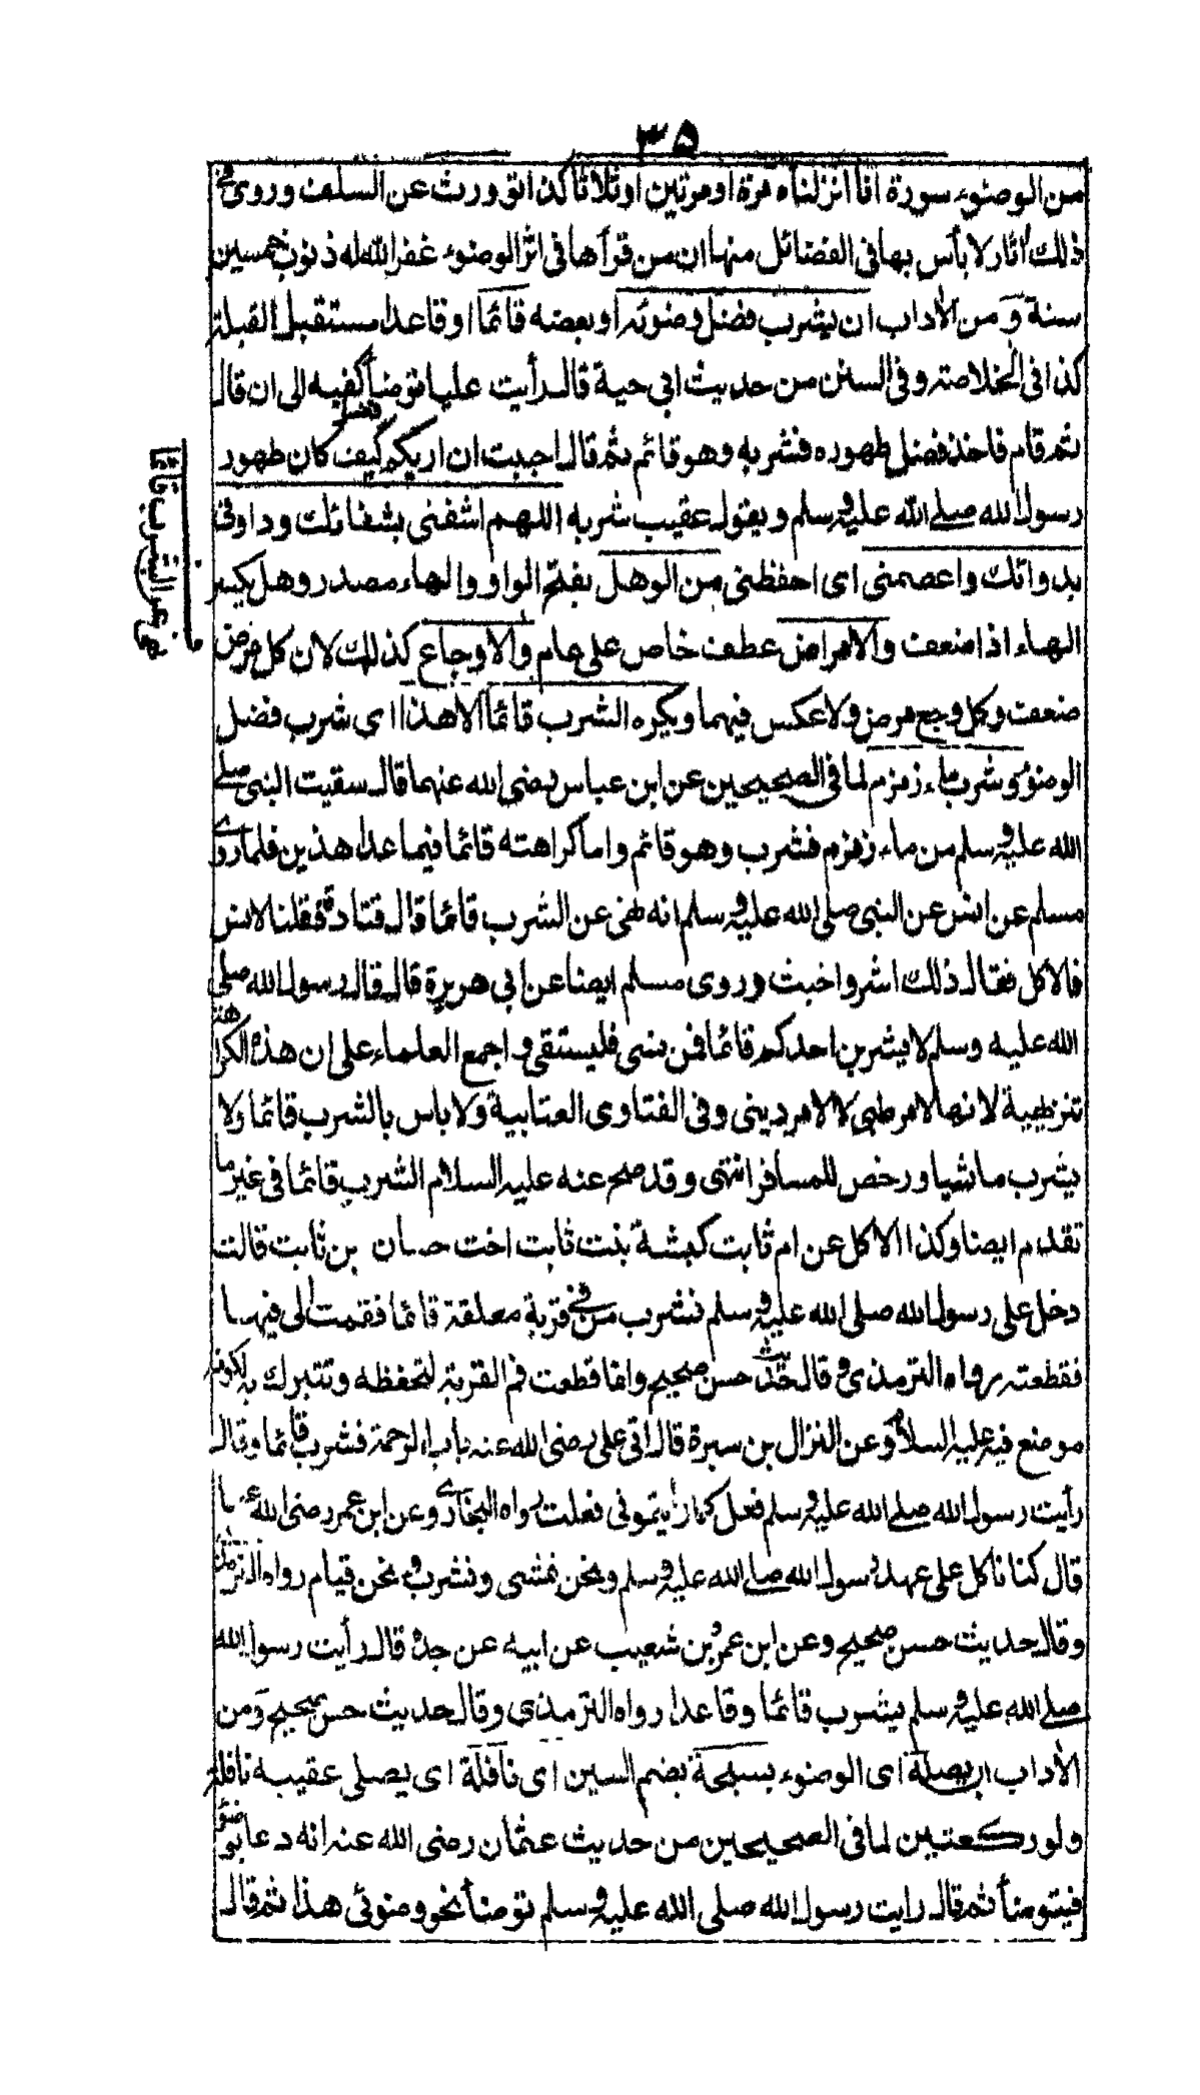 ٣٥
من الوضوء سورة انا انزلناه مرة او مرتين او ثلاثا كذا توورث عن السلف وروى فى
ذلك اثار لا بأس بها فى الفضائل منها ان من قرأها فى اثر الوضوء غفر الله له ذنوب خمسين
سنة و من الاداب ان يشرب فضل وضوئه او بعضه قائما او قاعدا مستقبل القبلة
كذا فى الخلاصة و فى السنن من حديث ابي حية قال رأيت عليا توضأ كفيه الى ان قال
ثم قام فاخذ فضل طهوره فشربه وهو قائم ثم قال احببت ان اريكم كيف كان طهور
رسول الله صلى الله عليه وسلم و يقول عقيب شربه اللهم اشفنى بشفائك وداونى
بدوائك واعصمنى اى احفظنى من الوهل بفتح الواو والهاء مصدر وهل بكسر
الهاء اذا ضعف والامراض عطف خاص على عام والاوجاع كذلك لان كل مرض
ضعف وكل وجع مرض ولا عكس فيهما ويكره الشرب قائما الا هذا اى شرب فضل
الوضوء و شرب ماء زمزم لما فى الصحيحين عن ابن عباس رضى الله عنهما قال سقيت النبى صلى
الله عليه وسلم من ماء زمزم فشرب وهو قائم واما كراهته قائما فيما عدا هذين فلما روى
مسلم عن انس عن النبى صلى الله عليه وسلم انه نهى عن الشرب قائما قال قتادة فقلنا لانس
فالاكل فقال ذلك اشر واخبث وروى مسلم ايضا عن ابي هريرة قال قال رسول الله صلى
الله عليه وسلم لا يشربن احدكم قائما فمن نسى فليستقئ و اجمع العلماء على ان هذه الكراهة
تنزيهية لانها لامر طبى لا لامر دينى وفى الفتاوى العتابية ولا باس بالشرب قائما ولا
يشرب ماشيا ورخص للمسافر انتهى وقد صح عنه عليه السلام الشرب قائما فى غير ما
تقدم ايضا وكذا الاكل عن ام ثابت كبشة بنت ثابت اخت حسان بن ثابت قالت
دخل على رسول الله صلى الله عليه وسلم فشرب من فى قربة معلقة قائما فقمت الى فيها
فقطعته رواه الترمذى وقال حديث حسن صحيح وانما قطعت فم القربة لتحفظه وتتبرك به لكونه
موضع فيه عليه السلام وعن النزال بن سبرة قال اتى على رضى الله عنه باب الرحبة فشرب قائما وقال
رأيت رسول الله صلى الله عليه وسلم فعل كما رأيتمونى فعلت رواه البخارى وعن ابن عمر رضى الله عنهما
قال كنا ناكل على عهد رسول الله صلى الله عليه وسلم ونحن نمشى ونشرب ونحن قيام رواه الترمذى
وقال حديث حسن صحيح وعن ابن عمرو بن شعيب عن ابيه عن جده قال رأيت رسول الله
صلى الله عليه وسلم يشرب قائما وقاعدا رواه الترمذى وقال حديث حسن صحيح و من
الاداب ان يصله اى الوضوء بسبحة بضم السين اى نافلة اى يصلى عقيبه نافلة
ولو ركعتين لما فى الصحيحين من حديث عثمان رضى الله عنه انه دعا بوضوء
فتوضأ ثم قال رايت رسول الله صلى الله عليه وسلم توضأ نحو وضوئى هذا ثم قال
نهى عن الشرب قائما